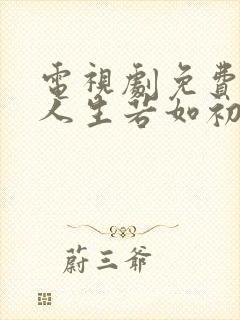 電視劇免費
人生若如初
蔚三爺